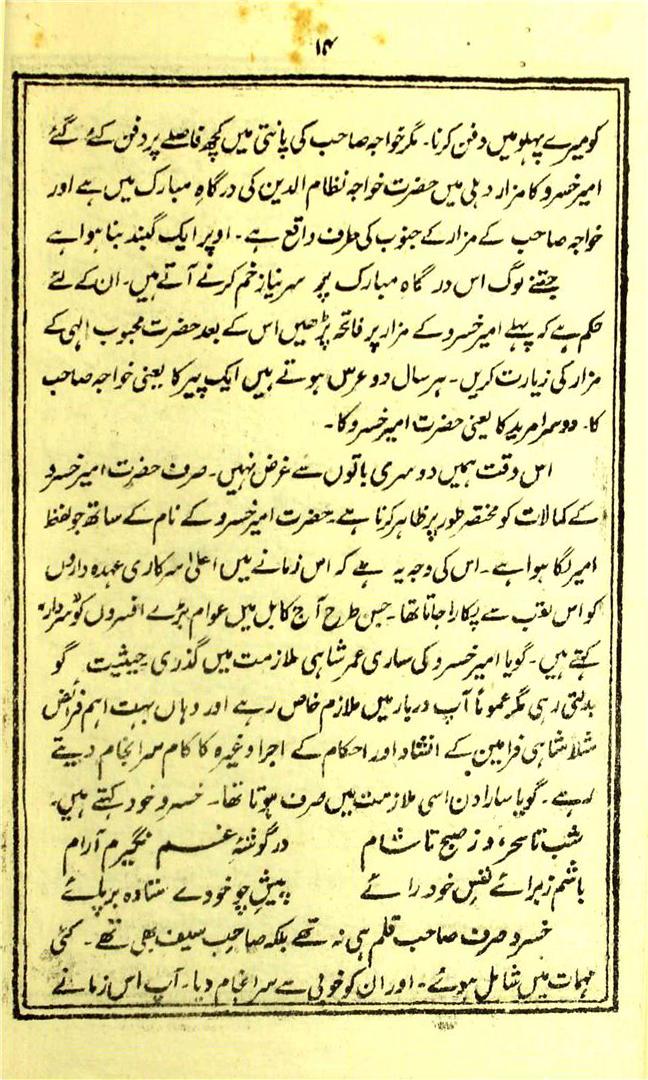 ۱۴
کو میرے پہلو میں دفن کرنا۔ مگر خواجہ صاحب کی پائنتی میں کچھ فاصلے پر دفن کئے گئے
امیر خسرو کا مزار دہلی میں حضرت خواجہ نظام الدین کی درگاہِ مبارک میں ہے اور
خواجہ صاحب کے مزار کے جنوب کی طرف واقع ہے۔ اوپر ایک گنبد بنا ہوا ہے
جتنے لوگ اس درگاہِ مبارک پر سرِ نیاز خم کرنے آتے ہیں۔ ان کے لئے
حکم ہے کہ پہلے امیر خسرو کے مزار پر فاتحہ پڑھیں اس کے بعد حضرت محبوب الٰہی کے
مزار کی زیارت کریں۔ ہر سال دو عرس ہوتے ہیں ایک پیر کا یعنی خواجہ صاحب
کا۔ دوسرا مرید کا یعنی حضرت امیر خسرو کا۔
اس وقت ہمیں دوسری باتوں سے غرض نہیں۔ صرف حضرت امیر خسرو
کے کمالات کو مختصر طور پر ظاہر کرنا ہے۔ حضرت امیر خسرو کے نام کے ساتھ جو لفظ
امیر لگا ہوا ہے۔ اس کی وجہ یہ ہے کہ اس زمانے میں اعلیٰ سرکاری عہدہ داروں
کو اس لقب سے پکارا جاتا تھا۔ جس طرح آج کابل میں عوام بڑے افسروں کو "سردار"
کہتے ہیں۔ گویا امیر خسرو کی ساری عمر شاہی ملازمت میں گذری حیثیت گو
بدلتی رہی مگر عموماً آپ دربار میں ملازم خاص رہے اور وہاں بہت اہم فرائض
مثلاً شاہی فرامین کے انشاد اور احکام کے اجرا وغیرہ کا کام سرانجام دیتے
رہے۔ گویا سارا دن اسی ملازمت میں صرف ہوتا تھا۔ خسرو خود کہتے ہیں۔
شب تا سحر و ز صبح تا شام در گوشۂ غم نگیرم آرام
باشم ز برائے نفسِ خود رائے پیشِ چو خودے ستادہ بر پائے
خسرو صرف صاحب قلم ہی نہ تھے بلکہ صاحبِ سیف بھی تھے۔ کئی
مہمات میں شامل ہوئے۔ اور ان کو خوبی سے سرانجام دیا۔ آپ اس زمانے